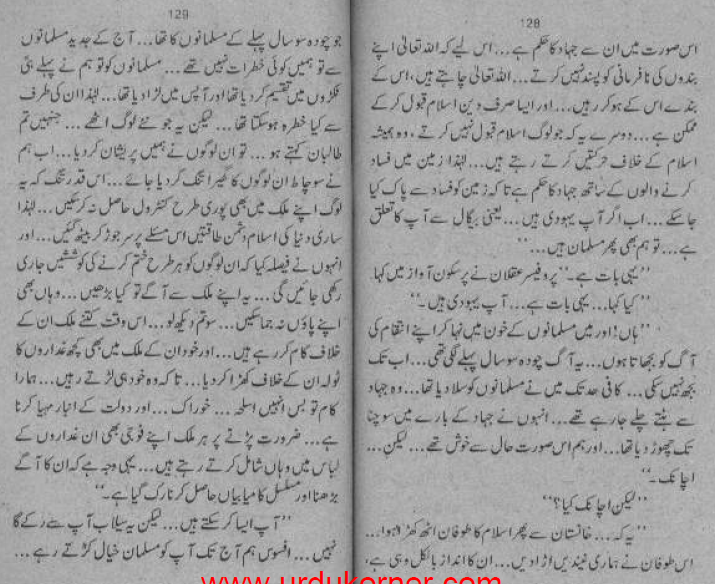 128
اس صورت میں ان سے جہاد کا حکم ہے... اس لیے کہ اللہ تعالیٰ اپنے
بندوں کی نافرمانی کو پسند نہیں کرتے... اللہ تعالیٰ چاہتے ہیں، اس کے
بندے اس کے ہو کر رہیں... اور ایسا صرف دین اسلام قبول کر کے
ممکن ہے... دوسرے یہ کہ جو لوگ اسلام قبول نہیں کرتے، وہ ہمیشہ
اسلام کے خلاف حرکتیں کرتے رہتے ہیں... لہٰذا زمین میں فساد
کرنے والوں کے ساتھ جہاد کا حکم ہے تاکہ زمین کو فساد سے پاک کیا
جا سکے... اب اگر آپ یہودی ہیں... یعنی بیگال سے آپ کا تعلق
ہے... تو ہم بھی پھر مسلمان ہیں...“
”یہی بات ہے۔“ پروفیسر عقلان نے پرسکون آواز میں کہا۔
”کیا کہا... یہی بات ہے... آپ یہودی ہیں۔“
”ہاں! اور میں مسلمانوں کے خون میں نہا کر اپنے انتقام کی
آگ کو بجھاتا ہوں... یہ آگ چودہ سو سال پہلے لگی تھی... اب تک
بجھ نہیں سکی... کافی حد تک میں نے مسلمانوں کو سلا دیا تھا... وہ جہاد
سے ہٹتے چلے جا رہے تھے... انہوں نے جہاد کے بارے میں سوچنا
تک چھوڑ دیا تھا... اور ہم اس صورت حال سے خوش تھے... لیکن...
اچانک۔“
”لیکن اچانک کیا؟“
”یہ کہ... خانستان سے پھر اسلام کا طوفان اٹھ کھڑا ہوا...
اس طوفان نے ہماری نیندیں اڑا دیں... ان کا انداز بالکل وہی ہے،
129
جو چودہ سو سال پہلے کے مسلمانوں کا تھا... آج کے جدید مسلمانوں
سے تو ہمیں کوئی خطرات نہیں تھے... مسلمانوں کو تو ہم نے پہلے ہی
ٹکڑوں میں تقسیم کر دیا تھا اور آپس میں لڑا دیا تھا... لہٰذا ان کی طرف
سے کیا خطرہ ہو سکتا تھا... لیکن یہ جو نئے لوگ اٹھے... جنہیں تم
طالبان کہتے ہو... تو ان لوگوں نے ہمیں پریشان کر دیا... اب ہم
نے سوچا ان لوگوں کا گھیرا تنگ کر دیا جائے... اس قدر تنگ کہ یہ
لوگ اپنے ملک میں بھی پوری طرح کنٹرول حاصل نہ کر سکیں... لہٰذا
ساری دنیا کی اسلام دشمن طاقتیں اس مسئلے پر سر جوڑ کر بیٹھ گئیں... اور
انہوں نے فیصلہ کیا کہ ان لوگوں کو ہر طرح ختم کرنے کی کوششیں جاری
رکھی جائیں گی... یہ اپنے ملک سے آگے تو کیا بڑھیں... وہاں بھی
اپنے پاؤں نہ جما سکیں... سو تم دیکھ لو... اس وقت کتنے ملک ان کے
خلاف کام کر رہے ہیں... اور خود ان کے ملک میں بھی کچھ غداروں کا
ٹولہ ان کے خلاف کھڑا کر دیا... تاکہ وہ خود ہی لڑتے رہیں... ہمارا
کام تو بس انہیں اسلحہ... خوراک... اور دولت کے انبار مہیا کرنا
ہے... ضرورت پڑنے پر ہر ملک اپنے فوجی بھی ان غداروں کے
لباس میں وہاں شامل کرتے رہتے ہیں... یہی وجہ ہے کہ ان کا آگے
بڑھنا اور مسلسل کامیابیاں حاصل کرنا رک گیا ہے۔“
”آپ ایسا کر سکتے ہیں... لیکن یہ سیلاب آپ سے رکے گا
نہیں... افسوس ہم آج تک آپ کو مسلمان خیال کرتے رہے...
www.urdukorner.com